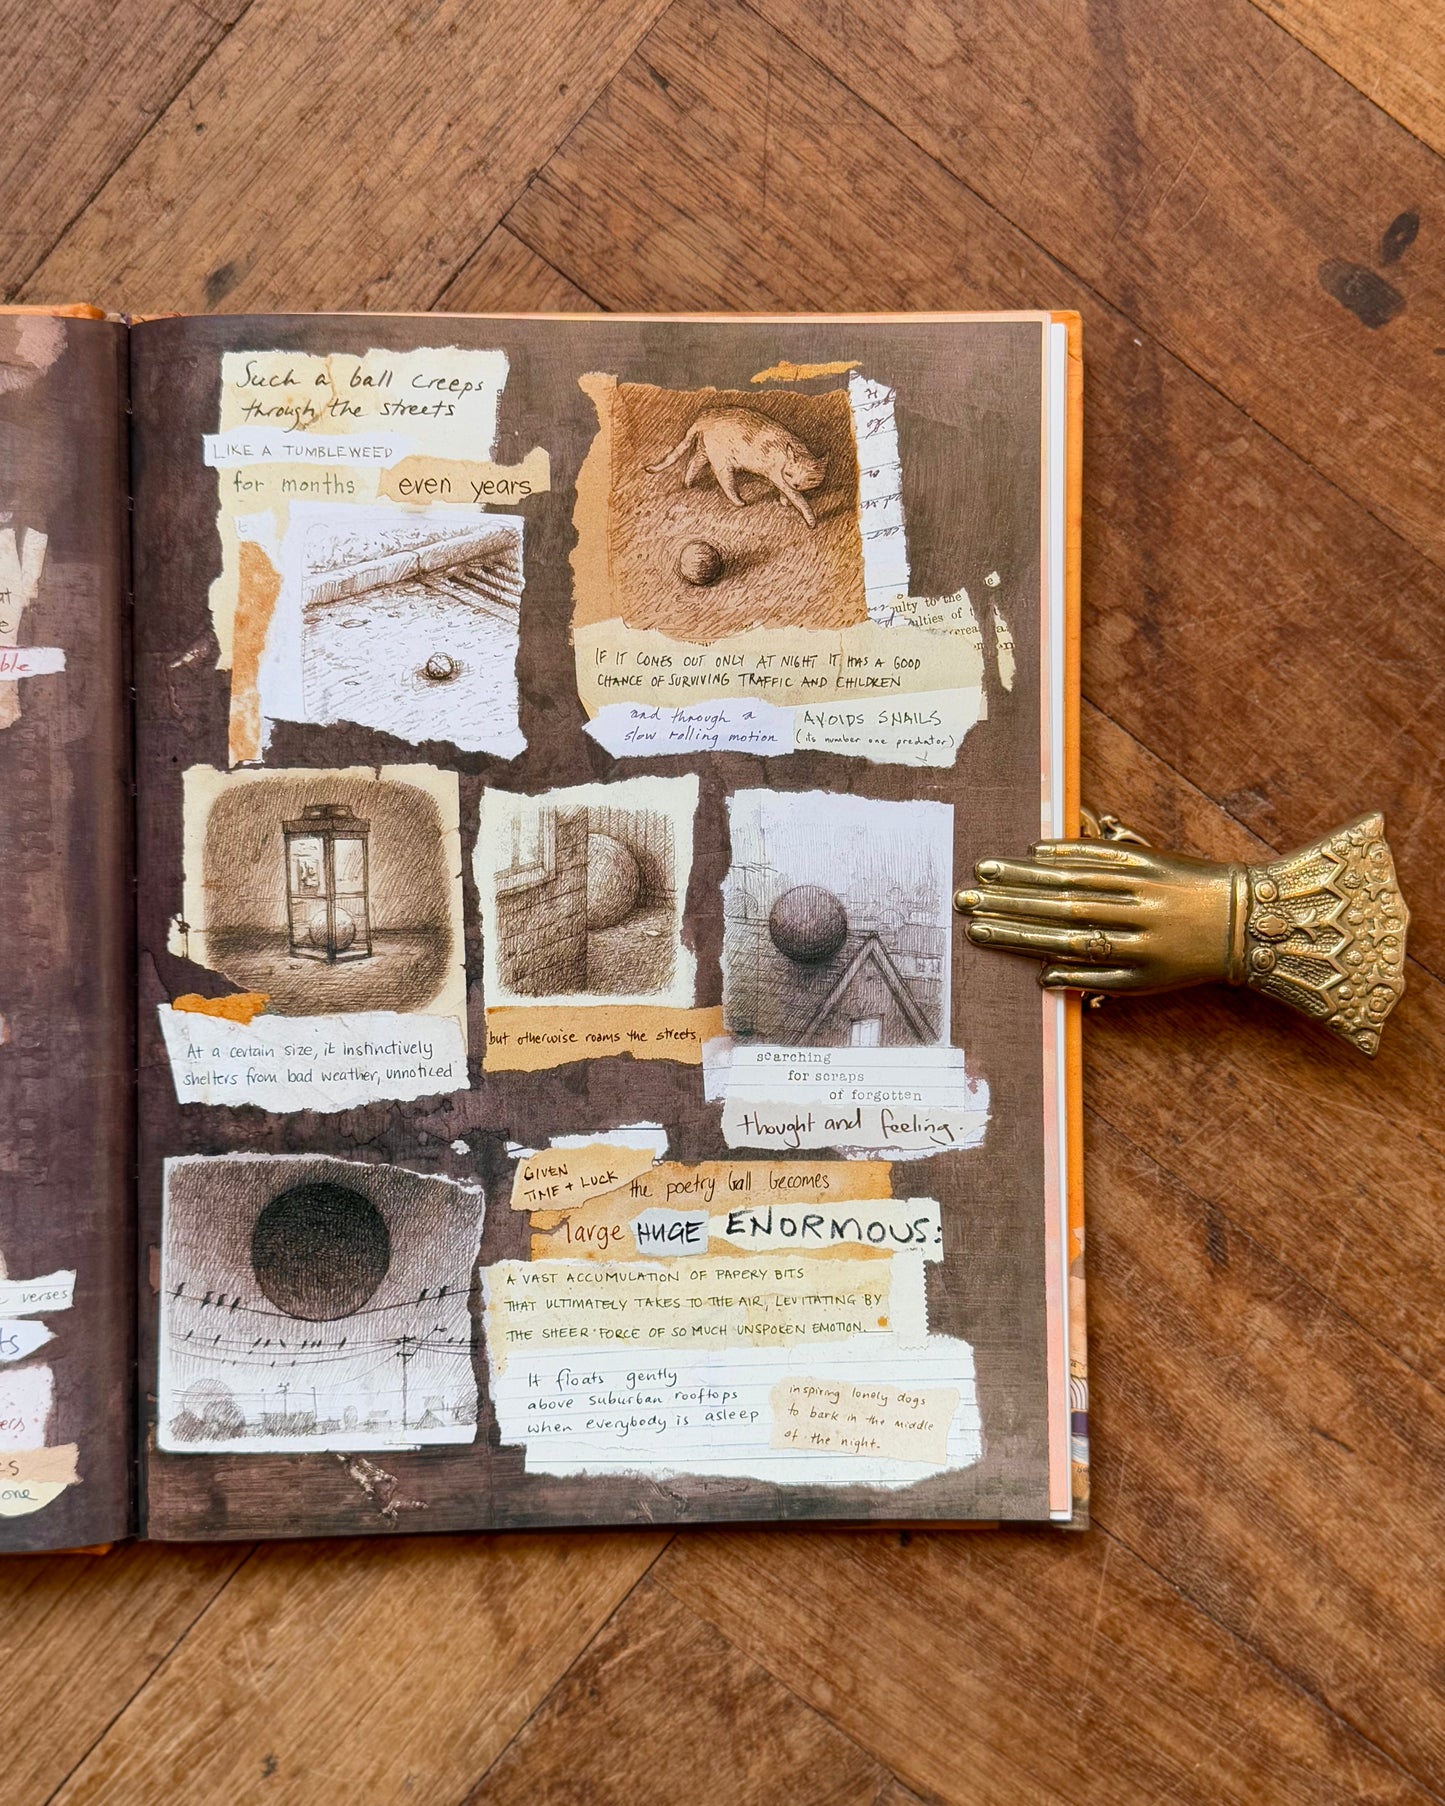 ble
verses
ts
one
Such a ball creeps
through the streets
LIKE A TUMBLEWEED
for months even years
IF IT COMES OUT ONLY AT NIGHT IT HAS A GOOD
CHANCE OF SURVIVING TRAFFIC AND CHILDREN
and through a
slow rolling motion
AVOIDS SNAILS
(its number one predator)
ulty to the
ulties of
At a certain size, it instinctively
shelters from bad weather, unnoticed
but otherwise roams the streets,
searching
for scraps
of forgotten
thought and feeling.
GIVEN
TIME + LUCK
the poetry ball becomes
large HUGE ENORMOUS:
A VAST ACCUMULATION OF PAPERY BITS
THAT ULTIMATELY TAKES TO THE AIR, LEVITATING BY
THE SHEER FORCE OF SO MUCH UNSPOKEN EMOTION.
It floats gently
above suburban rooftops
when everybody is asleep
inspiring lonely dogs
to bark in the middle
of the night.